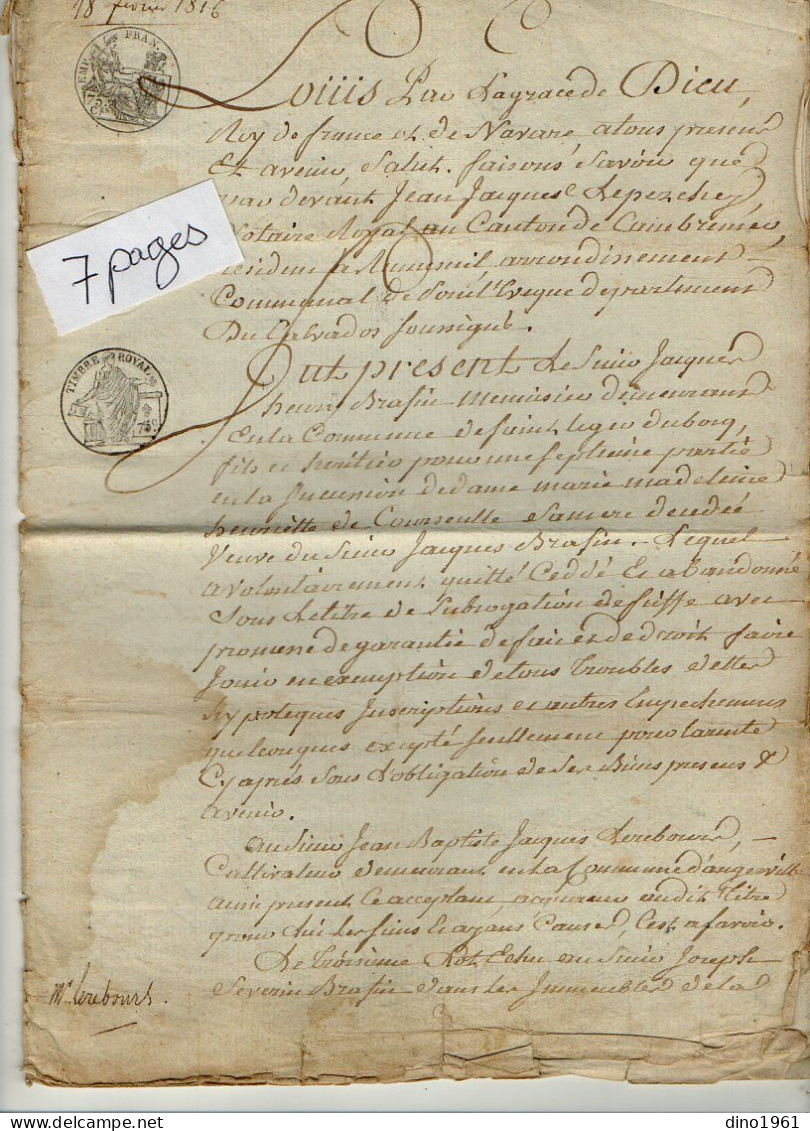 18 février 1816
EMP. FRAN.
75 C.
Louiis Par Lagrace de Dieu,
Roy de france et de Navare atous presens
Et avenir, Salut. faisons Savoir que
par devant Jean Jacques Leperchey
Notaire Royal au Canton de Cambremer,
résident a Rumesnil, arrondissement
Communal de Pont L'Eveque departement
Du Calvados soussigné.
7 pages
TIMBRE ROYAL
75 c.
fut present Le Sieur Jacques
henri Brasin Menuisier demeurant
En la Commune de saint Leger dubosq,
fils et heritier pour une septieme partie
en la sucession de dame marie madeleine
henriette de Courseulle sa mere decedeé
Veuve du Sieur Jacques Brasin. Lequel
a volontairement quitté Ceddé Et abandonné
Sous Letitre de Subrogation de fieffe avec
promesse de garantie de fait et de droit faire
Jouir en exemption de tous troubles dettes
hypoteques Inscriptions et autres Empechemens
quelconques excepté seullement pour la rente
Cyaprés Sous L'obligation de Ses Biens presens &
avenir.
au Sieur Jean Baptiste Jacques Lerebours,
Cultivateur demeurant en La Commune d'angerville
aussi present Ce acceptant, acquereur audit titre
pour Lui Ses hoirs Et ayans Cause, C'est a savoir.
Le Troisieme Lot Echu au Sieur Joseph
Severin Brasin dans Les Immeubles de la
Mr. Lerebours.
dino1961
delcampe.net